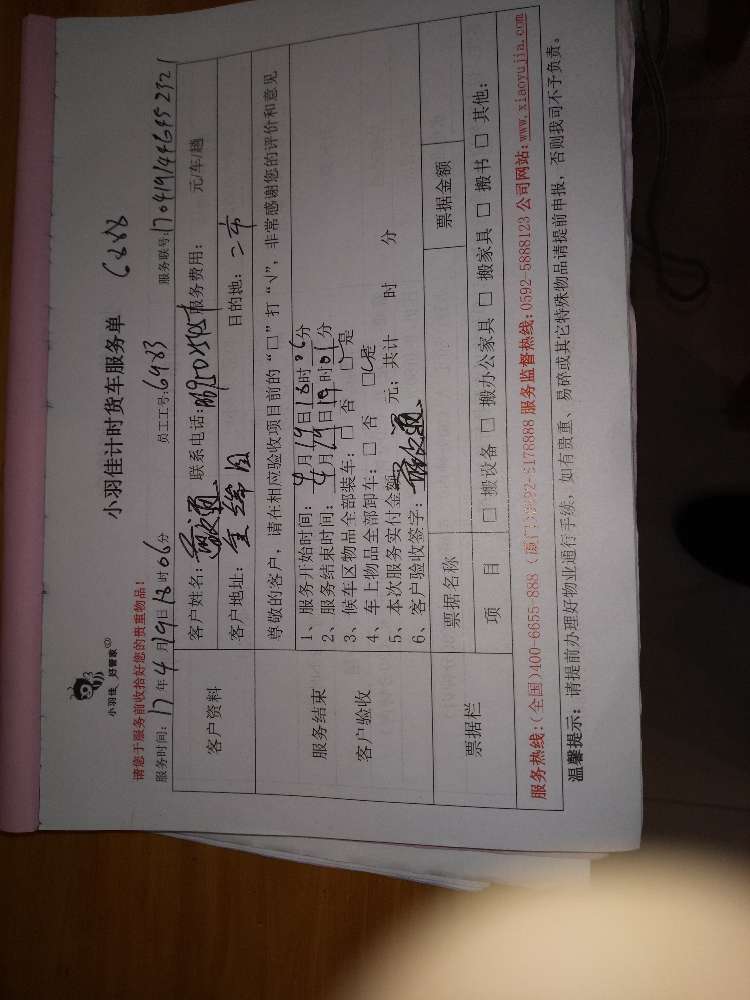 小羽佳 好管家
小羽佳计时货车服务单
请您于服务前收拾好您的贵重物品!
服务时间: 17 年 4 月 19 日 18 时 06 分 员工工号: 6983 服务联号: 1704191446352321
客户资料
客户姓名: 联系电话: 服务费用: 元/车/趟
客户地址: 目的地: 二市
尊敬的客户,请在相应验收项目前的“□”打“√”,非常感谢您的评价和意见
服务结束
客户验收
1、服务开始时间: 4 月 19 日 18 时 06 分
2、服务结束时间: 4 月 19 日 19 时 01 分
3、候车区物品全部装车: □ 否 □ 是
4、车上物品全部卸车: □ 否 □ 是
5、本次服务实付金额 元; 共计 时 分
6、客户验收签字:
票据栏
票据名称 票据金额
项 目 □ 搬设备 □ 搬办公家具 □ 搬家具 □ 搬书 □ 其他:
服务热线:(全国)400-6655-888 (厦门)0592-3178888 服务监督热线:0592-5888123 公司网站:www.xiaoyujia.com
温馨提示: 请提前办理好物业通行手续,如有贵重、易碎或其它特殊物品请提前申报,否则我司不予负责。